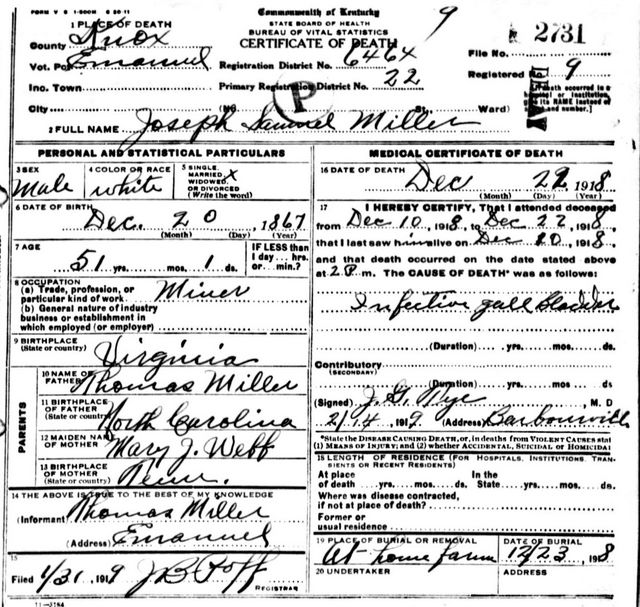 FORM V S 1-500M 6 20 11
Commonwealth of Kentucky
STATE BOARD OF HEALTH
BUREAU OF VITAL STATISTICS
CERTIFICATE OF DEATH
9
2731
1 PLACE OF DEATH
County Knox
Vot. Emanuel
Inc. Town
City (No. St. Ward)
Registration District No. 6464
Primary Registration District No. 22
P
File No.
Registered No. 9
If death occurred in a hospital or institution, give its NAME instead of street and number.
2 FULL NAME Joseph Samuel Miller
PERSONAL AND STATISTICAL PARTICULARS
3 SEX Male
4 COLOR OR RACE white
5 SINGLE, MARRIED X WIDOWED OR DIVORCED (Write the word)
6 DATE OF BIRTH Dec. 20, 1867
(Month) (Day) (Year)
7 AGE 51 yrs. mos. 1 ds.
IF LESS than 1 day... hrs. or min.?
8 OCCUPATION
(a) Trade, profession, or particular kind of work Miner
(b) General nature of industry business or establishment in which employed (or employer)
9 BIRTHPLACE (State or country) Virginia
PARENTS
10 NAME OF FATHER Thomas Miller
11 BIRTHPLACE OF FATHER (State or country) North Carolina
12 MAIDEN NAME OF MOTHER Mary J. Webb
13 BIRTHPLACE OF MOTHER (State or country) Tenn.
14 THE ABOVE IS TRUE TO THE BEST OF MY KNOWLEDGE
(Informant) Thomas Miller
(Address) Emanuel
15
Filed 1/31 1919 REGISTRAR
11-3184
MEDICAL CERTIFICATE OF DEATH
16 DATE OF DEATH Dec 22 1918
(Month) (Day) (Year)
17 I HEREBY CERTIFY, That I attended deceased
from Dec 10, 1918, to Dec 22, 1918,
that I last saw him alive on Dec 20, 1918,
and that death occurred on the date stated above
at 2 P m. The CAUSE OF DEATH* was as follows:
Infective gall bladder
(Duration) yrs. mos. ds.
Contributory (SECONDARY)
(Duration) yrs. mos. ds.
(Signed) J. G. Nye, M. D
2/14 1919 (Address) Barbourville
*State the DISEASE CAUSING DEATH, or, in deaths from VIOLENT CAUSES stat
(1) MEANS OF INJURY; and (2) whether ACCIDENTAL, SUICIDAL or HOMICIDAL
18 LENGTH OF RESIDENCE (FOR HOSPITALS, INSTITUTIONS, TRANSIENTS OR RECENT RESIDENTS)
At place of death yrs. mos. ds. In the State yrs. mos. ds.
Where was disease contracted, if not at place of death?
Former or usual residence
19 PLACE OF BURIAL OR REMOVAL At home farm
DATE OF BURIAL 12/23, 1918
20 UNDERTAKER
ADDRESS